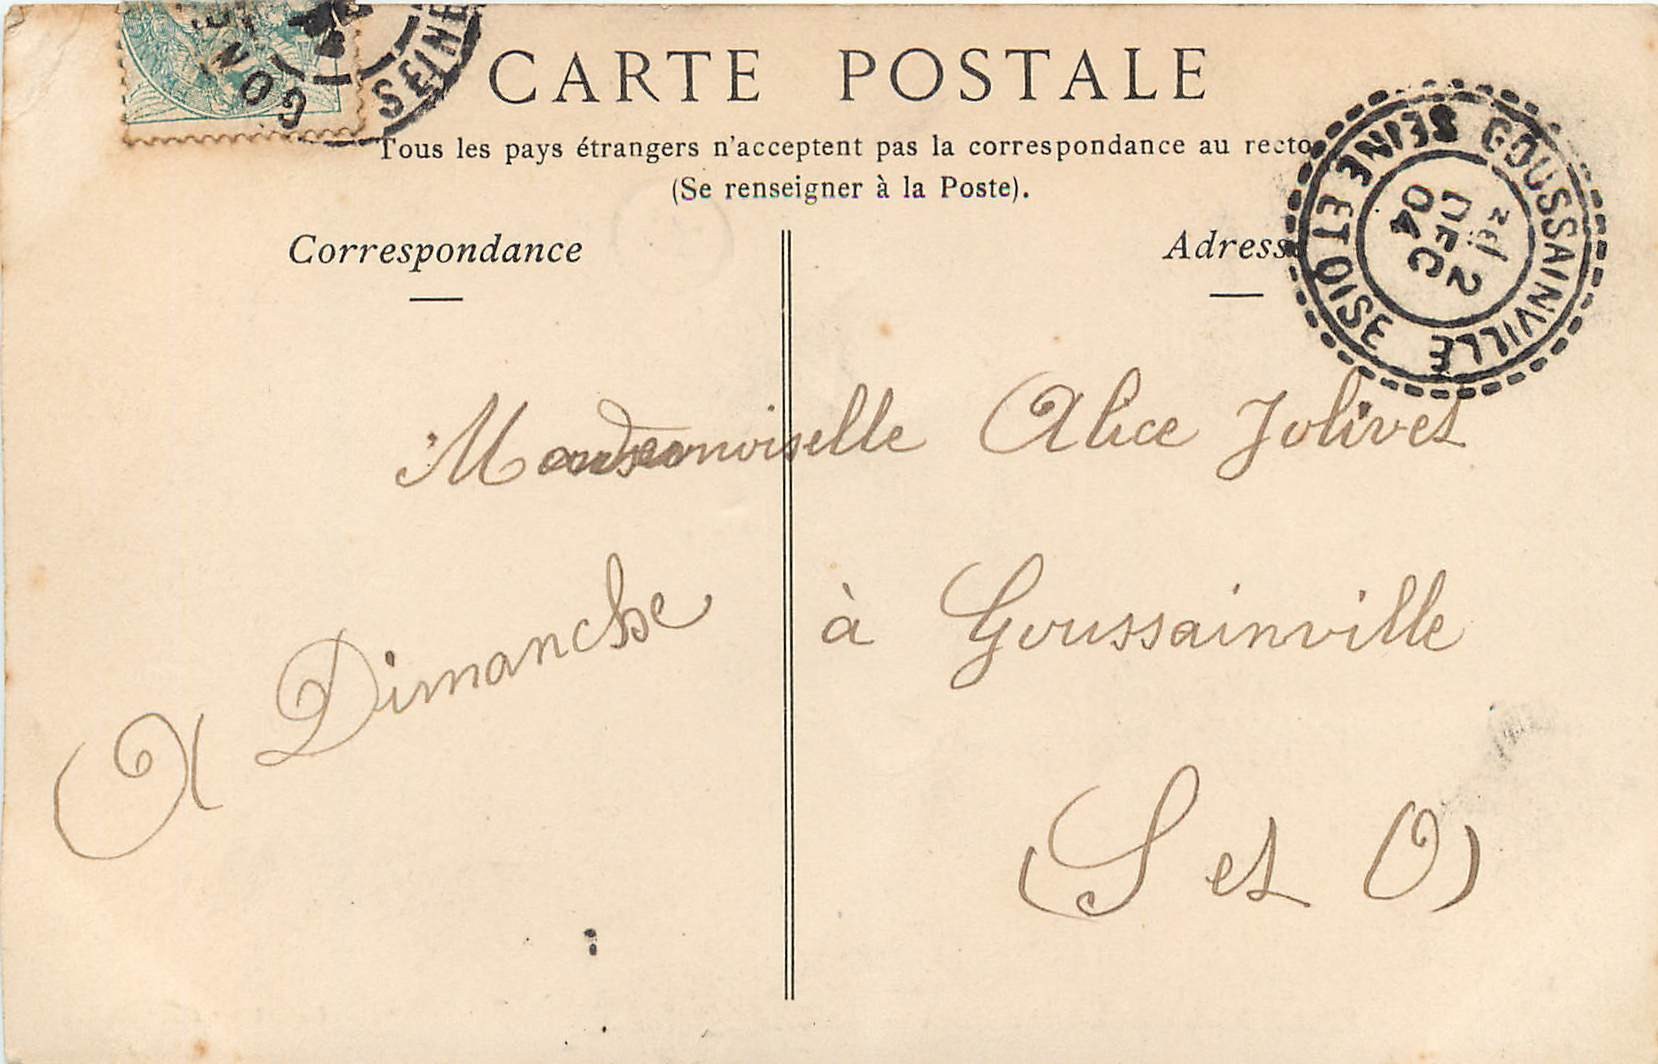 CARTE POSTALE
Tous les pays étrangers n'acceptent pas la correspondance au recto
(Se renseigner à la Poste).
Correspondance
Adress
GOUSSAINVILLE
SEINE ET OISE
2
DEC
04
SEINE
Mademoiselle Alice Jolivet
à Goussainville
(S et O)
A Dimanche